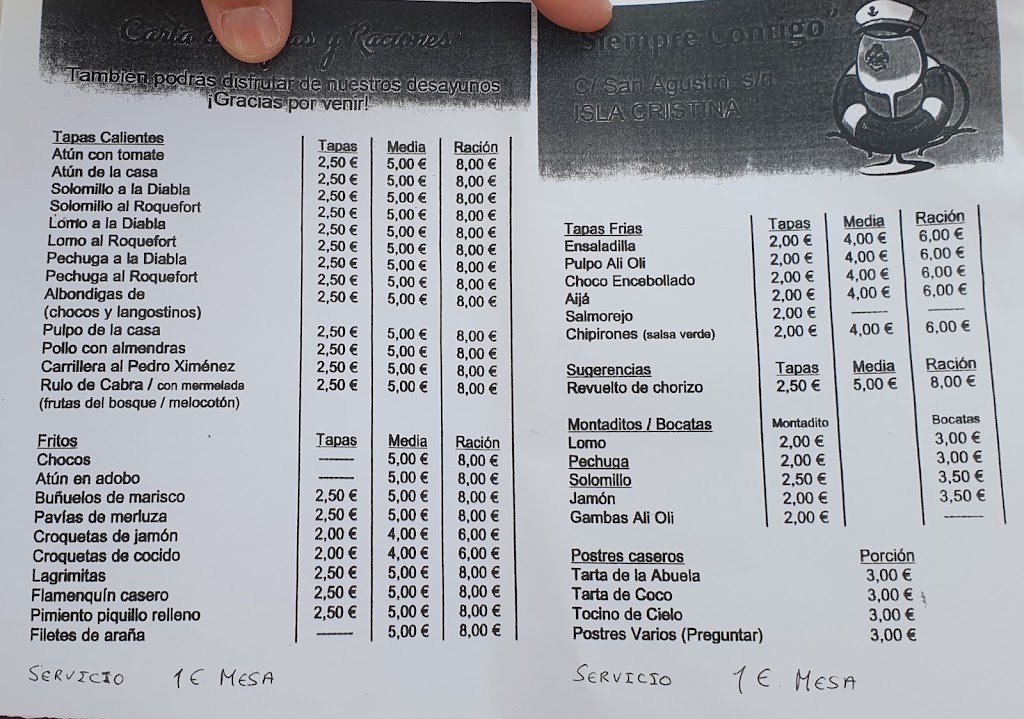 Carta y Raciones
También podrás disfrutar de nuestros desayunos
¡Gracias por venir!
Tapas Calientes Tapas Media Ración
Atún con tomate 2,50 € 5,00 € 8,00 €
Atún de la casa 2,50 € 5,00 € 8,00 €
Solomillo a la Diabla 2,50 € 5,00 € 8,00 €
Solomillo al Roquefort 2,50 € 5,00 € 8,00 €
Lomo a la Diabla 2,50 € 5,00 € 8,00 €
Lomo al Roquefort 2,50 € 5,00 € 8,00 €
Pechuga a la Diabla 2,50 € 5,00 € 8,00 €
Pechuga al Roquefort 2,50 € 5,00 € 8,00 €
Albondigas de 2,50 € 5,00 € 8,00 €
(chocos y langostinos)
Pulpo de la casa 2,50 € 5,00 € 8,00 €
Pollo con almendras 2,50 € 5,00 € 8,00 €
Carrillera al Pedro Ximénez 2,50 € 5,00 € 8,00 €
Rulo de Cabra / con mermelada 2,50 € 5,00 € 8,00 €
(frutas del bosque / melocotón)
Fritos Tapas Media Ración
Chocos ------ 5,00 € 8,00 €
Atún en adobo ------ 5,00 € 8,00 €
Buñuelos de marisco 2,50 € 5,00 € 8,00 €
Pavías de merluza 2,50 € 5,00 € 8,00 €
Croquetas de jamón 2,00 € 4,00 € 6,00 €
Croquetas de cocido 2,00 € 4,00 € 6,00 €
Lagrimitas 2,50 € 5,00 € 8,00 €
Flamenquín casero 2,50 € 5,00 € 8,00 €
Pimiento piquillo relleno 2,50 € 5,00 € 8,00 €
Filetes de araña ------ 5,00 € 8,00 €
SERVICIO 1 € MESA
"Siempre Contigo"
C/ San Agustín, s/n
ISLA CRISTINA
Tapas Frias Tapas Media Ración
Ensaladilla 2,00 € 4,00 € 6,00 €
Pulpo Ali Oli 2,00 € 4,00 € 6,00 €
Choco Encebollado 2,00 € 4,00 € 6,00 €
Aijá 2,00 € 4,00 € 6,00 €
Salmorejo 2,00 € ------ ------
Chipirones (salsa verde) 2,00 € 4,00 € 6,00 €
Sugerencias Tapas Media Ración
Revuelto de chorizo 2,50 € 5,00 € 8,00 €
Montaditos / Bocatas Montadito Bocatas
Lomo 2,00 € 3,00 €
Pechuga 2,00 € 3,00 €
Solomillo 2,50 € 3,50 €
Jamón 2,00 € 3,50 €
Gambas Ali Oli 2,00 € ------
Postres caseros Porción
Tarta de la Abuela 3,00 €
Tarta de Coco 3,00 €
Tocino de Cielo 3,00 €
Postres Varios (Preguntar) 3,00 €
SERVICIO 1 € MESA